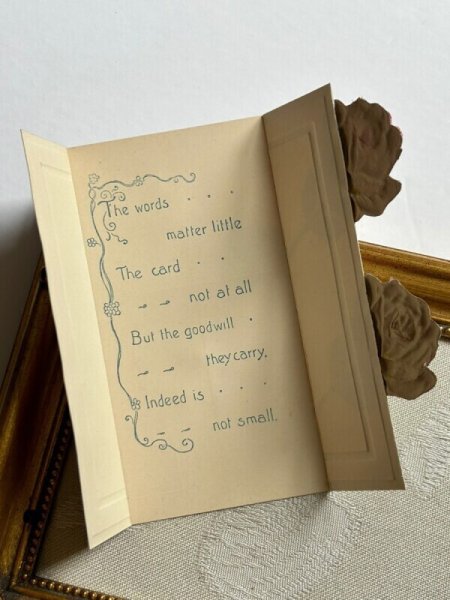 The words . . .
matter little
The card . .
not at all
But the goodwill .
they carry,
Indeed is . . .
not small.